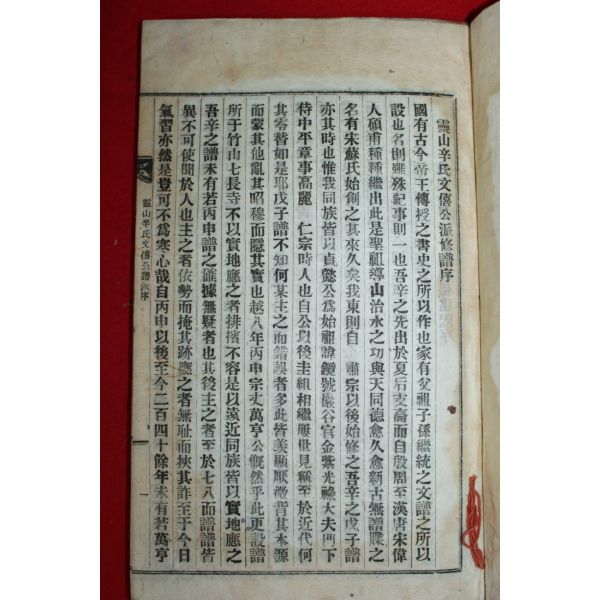 靈山辛氏文僖公派修譜序
國有古今帝王傳授之書史之所以作也家有父祖子孫繼統之文譜之所以
設也名則雖殊紀事則一也吾辛之先出於夏后支裔而自殷周至漢唐宋偉
人碩甫種種繼出此是聖祖導山治水之功與天同德愈久愈新古無譜牒之
名有宋蘇氏始創之其來久矣我東則自 肅宗以後始修之吾辛之戊子譜
亦其時也惟我同族皆以貞懿公爲始祖諱鏡號巖谷官金紫光祿大夫門下
侍中平章事高麗 仁宗時人也自公以後圭組相繼屢世見稱至於近代何
其零替如是耶戊子譜不知何某主之而錯誤者多此皆美顯厥微背其本源
而蒙其他亂其昭穆而隱其實也越八年丙申宗丈萬亨公慨然乎此更設譜
所于竹山七長寺不以實地應之者排擯不容是以遠近同族皆以實地應之
吾辛之譜未有若丙申譜之確據無疑者也其後主之者至於七八而譜譜皆
異不可使聞於人也主之者依勢而掩其跡應之者無耻而挾其詐至于今日
氣習亦然是豈可不爲寒心哉自丙申以後至今二百四十餘年未有若萬亨
靈山辛氏文僖公譜 序
一